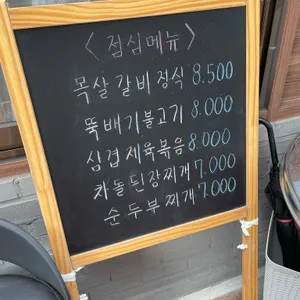 <점심메뉴>
목살 갈비 정식 8.500
뚝배기불고기 8.000
심겹제육볶음 8.000
차돌된장찌개 7.000
순두부찌개 7.000